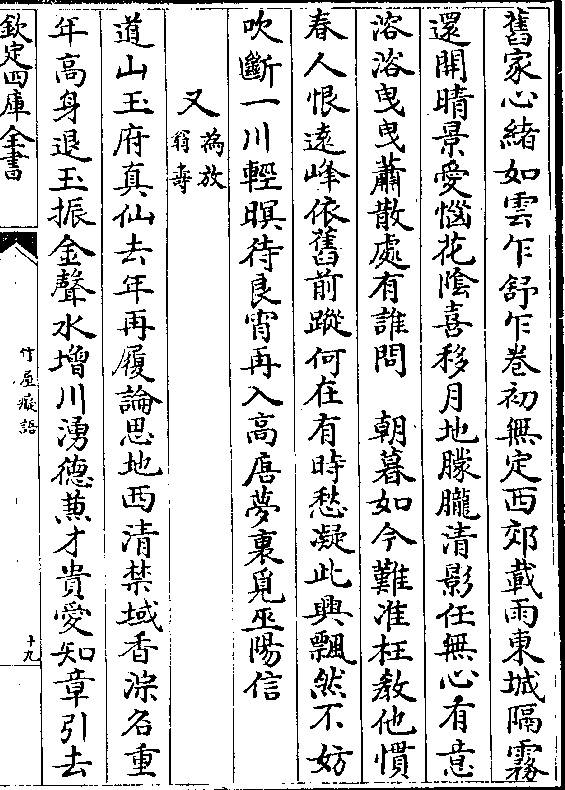 舊家心緒如雲乍舒乍卷初無定西郊載雨東城隔霧
還開晴景愛惱花陰喜移月地朦朧清影任無心有意
溶溶曳曳蕭散處有誰問　朝暮如今難准枉教他慣
春人恨遠峰依舊前蹤何在有時愁凝此興飄然不妨
吹斷一川輕暝待良宵再入高唐夢裏覓巫陽信
又 為放翁壽
道山玉府真仙去年再履論思地西清禁域香深名重
年高身退玉振金聲水增川湧德蕙才貴愛知章引去
欽定四庫全書
竹屋癡語
十九